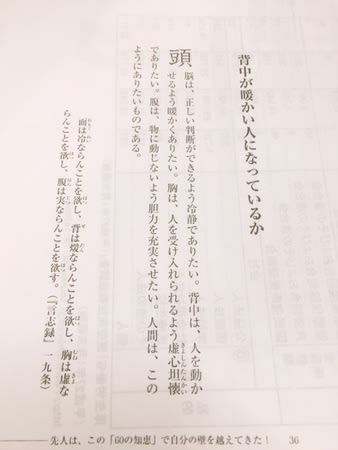 背中が暖かい人になっているか
頭脳は、正しい判断ができるよう冷静でありたい。背中は、人を動か
せるよう暖かくありたい。胸は、人を受け入れられるよう虚心坦懐
でありたい。腹は、物に動じないよう胆力を充実させたい。人間は、この
ようにありたいものである。
面は冷ならんことを欲し、背は煖ならんことを欲し、胸は虚な
らんことを欲し、腹は実ならんことを欲す。(『言志録』一九条)
先人は、この「60の知恵」で自分の壁を越えてきた! 36